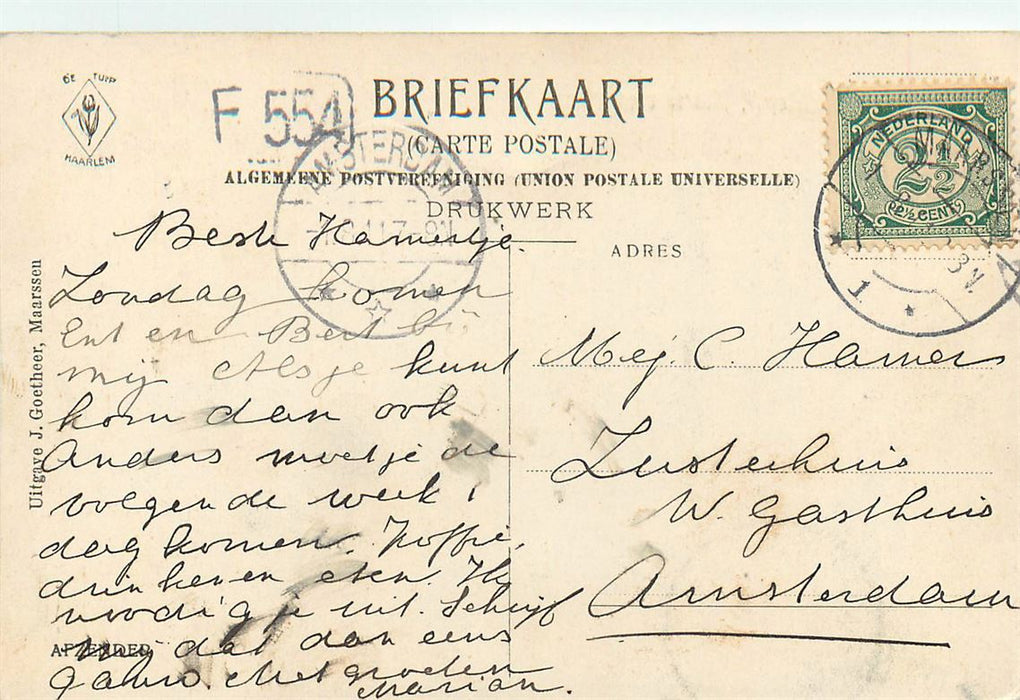 DE TULP
HAARLEM
F 554
BRIEFKAART
(CARTE POSTALE)
ALGEMEENE POSTVEREENIGING (UNION POSTALE UNIVERSELLE)
DRUKWERK
ADRES
AMSTERDAM
NEDERLAND
2½
2½ CENT
MAARS
1
Uitgave J. Goetheer, Maarssen
Beste Hamertje.
Zondag komen
Ent en Bert bij
mij Als je kunt
kom dan ook
Anders moet je de
volgende week 1
dag komen. Koffie,
drinken en eten. Hy
noodig je uit. Schrijf
my dat dan eens
gauw. Met groeten
Marian.
AFZENDER
Mej. C. Hamer
Zusterhuis
W. Gasthuis
Amsterdam